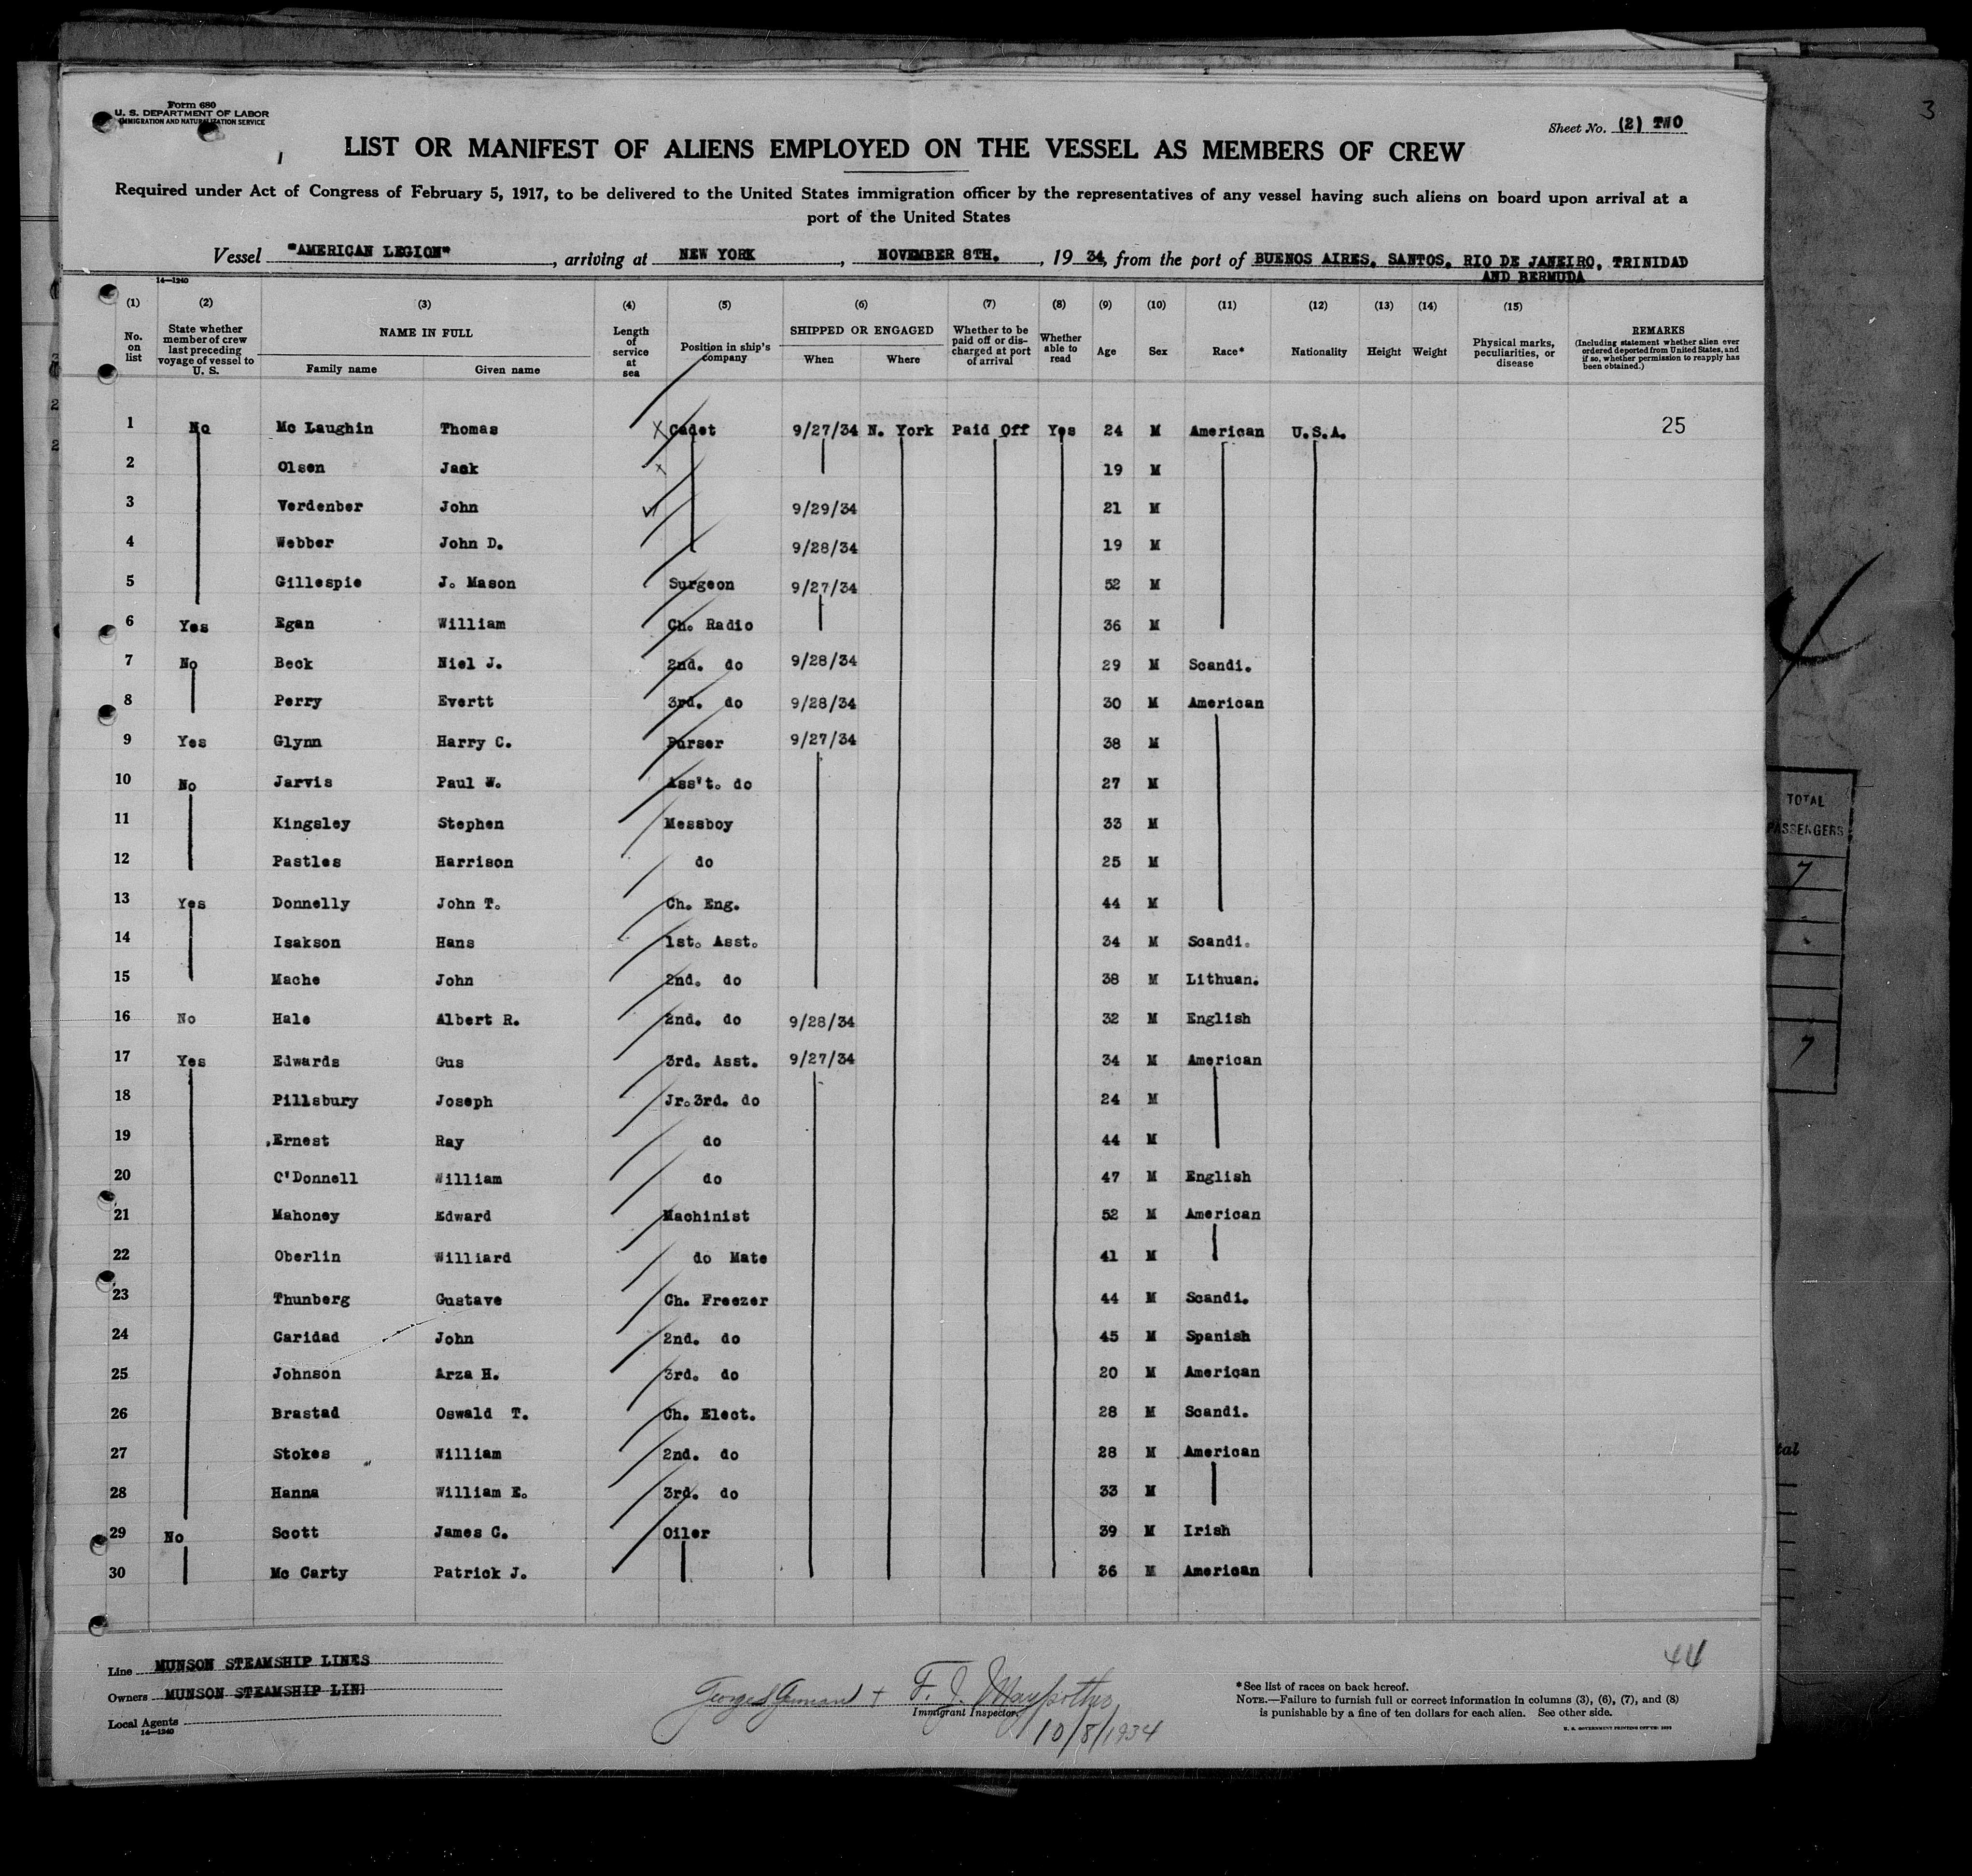 3
Form 680
U. S. DEPARTMENT OF LABOR
IMMIGRATION AND NATURALIZATION SERVICE
Sheet No. (2) TWO
LIST OR MANIFEST OF ALIENS EMPLOYED ON THE VESSEL AS MEMBERS OF CREW
Required under Act of Congress of February 5, 1917, to be delivered to the United States immigration officer by the representatives of any vessel having such aliens on board upon arrival at a
port of the United States
Vessel "AMERICAN LEGION", arriving at NEW YORK, NOVEMBER 8TH., 1934, from the port of BUENOS AIRES, SANTOS, RIO DE JANEIRO, TRINIDAD
AND BERMUDA
14—1240
(1) (2) (3) (4) (5) (6) (7) (8) (9) (10) (11) (12) (13) (14) (15)
No. on list State whether member of crew last preceding voyage of vessel to U. S. NAME IN FULL Family name Given name Length of service at sea Position in ship's company SHIPPED OR ENGAGED When Where Whether to be paid off or discharged at port of arrival Whether able to read Age Sex Race* Nationality Height Weight Physical marks, peculiarities, or disease REMARKS (Including statement whether alien ever ordered deported from United States, and if so, whether permission to reapply has been obtained.)
1 No Mc Laughin Thomas X Cadet 9/27/34 N. York Paid Off Yes 24 M American U.S.A. 25
2 Olsen Jack x 19 M
3 Verdenber John 9/29/34 21 M
4 Webber John D. 9/28/34 19 M
5 Gillespie J. Mason Surgeon 9/27/34 52 M
6 Yes Egan William Ch. Radio 36 M
7 No Beck Niel J. 2nd. do 9/28/34 29 M Scandi.
8 Perry Evertt 3rd. do 9/28/34 30 M American
9 Yes Glynn Harry C. Purser 9/27/34 38 M
10 No Jarvis Paul W. Ass't. do 27 M
11 Kingsley Stephen Messboy 33 M
12 Pastles Harrison do 25 M
13 Yes Donnelly John T. Ch. Eng. 44 M
14 Isakson Hans 1st. Asst. 34 M Scandi.
15 Mache John 2nd. do 38 M Lithuan.
16 No Hale Albert R. 2nd. do 9/28/34 32 M English
17 Yes Edwards Gus 3rd. Asst. 9/27/34 34 M American
18 Pillsbury Joseph Jr.3rd. do 24 M
19 Ernest Ray do 44 M
20 O'Donnell William do 47 M English
21 Mahoney Edward Machinist 52 M American
22 Oberlin Williard do Mate 41 M
23 Thunberg Gustave Ch. Freezer 44 M Scandi.
24 Caridad John 2nd. do 45 M Spanish
25 Johnson Arza H. 3rd. do 20 M American
26 Brastad Oswald T. Ch. Elect. 28 M Scandi.
27 Stokes William 2nd. do 28 M American
28 Hanna William E. 3rd. do 33 M
29 No Scott James C. Oiler 39 M Irish
30 Mc Carty Patrick J. 36 M American
TOTAL
PASSENGERS
7
7
44
Line MUNSON STEAMSHIP LINES
Owners MUNSON STEAMSHIP LINE
Local Agents
14—1240
F. J.
Immigrant Inspector.
10/8/1934
*See list of races on back hereof.
NOTE.—Failure to furnish full or correct information in columns (3), (6), (7), and (8)
is punishable by a fine of ten dollars for each alien. See other side.